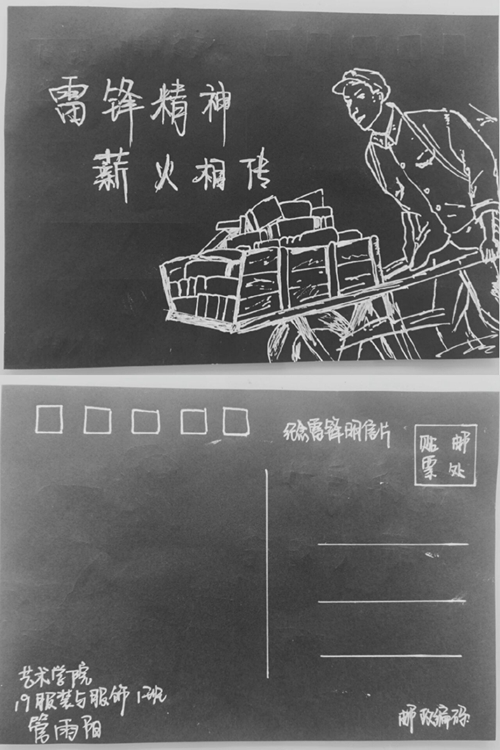 雷锋精神
薪火相传
纪念雷锋明信片
贴邮
票处
艺术学院
19服装与服饰1班
管雨阳
邮政编码